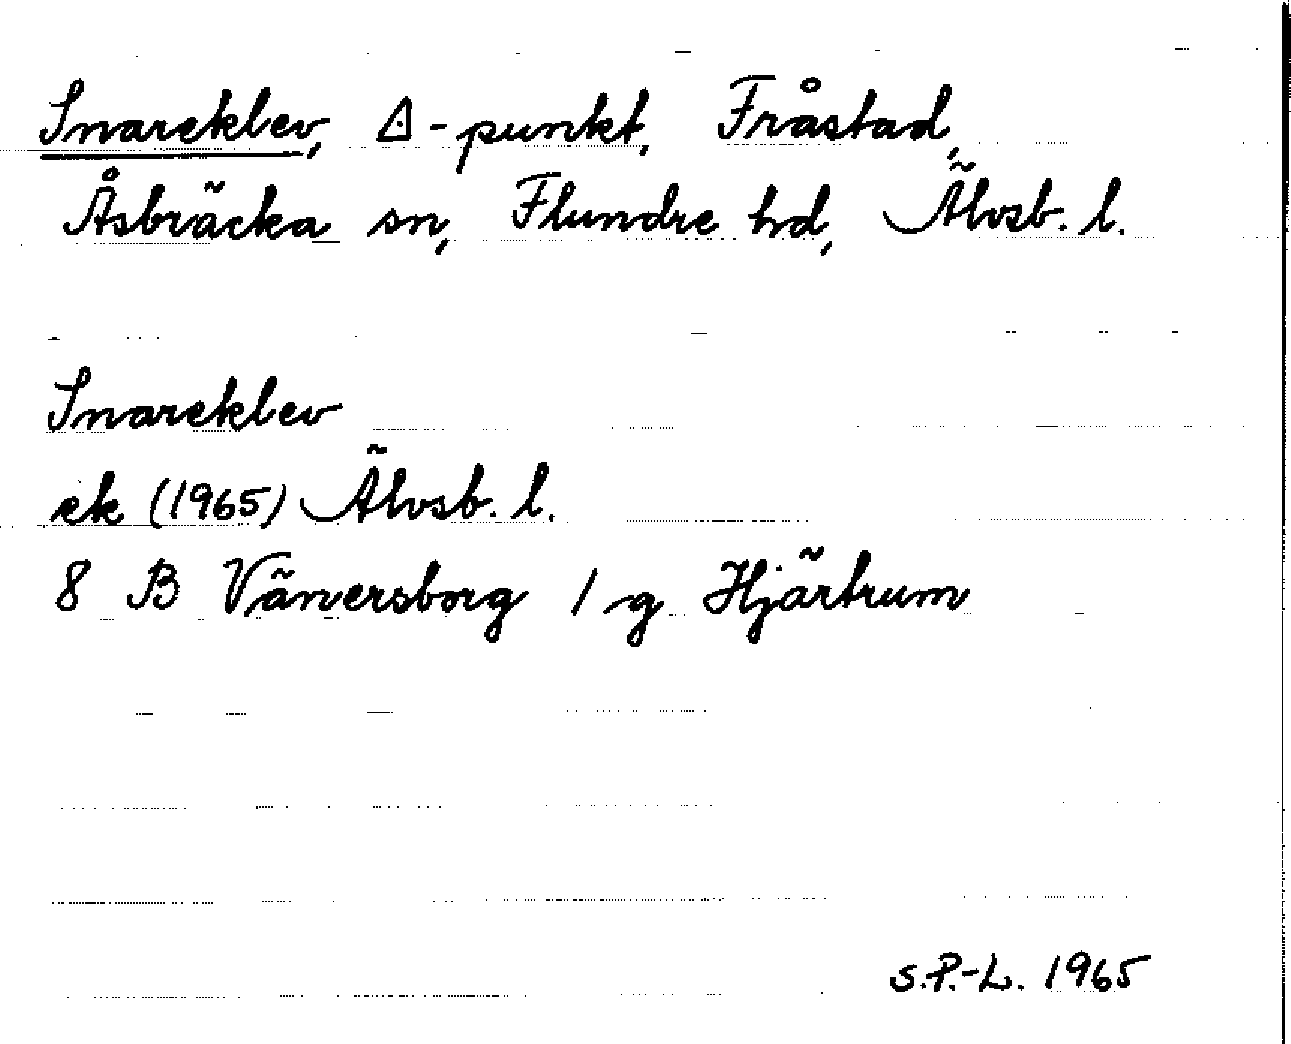 Snareklev, △-punkt, Fråstad,
Åsbräcka sn, Flundre hd, Älvsb. l.
Snareklev
ek (1965) Älvsb. l.
8 B Vänersborg 1 g Hjärtrum
S.P.-L. 1965